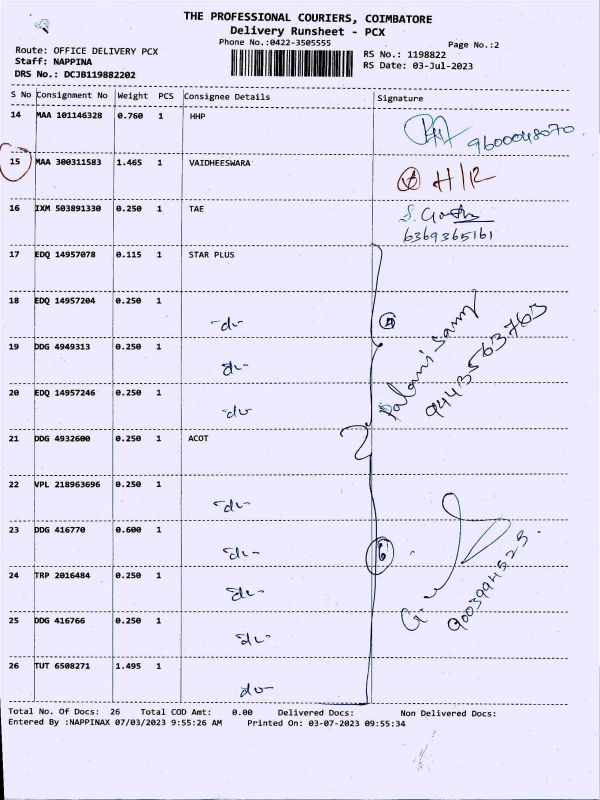 THE PROFESSIONAL COURIERS, COIMBATORE
Delivery Runsheet - PCX
Phone No.:0422-3505555
Page No.:2
Route: OFFICE DELIVERY PCX
RS No.: 1198822
Staff: NAPPINA
RS Date: 03-Jul-2023
DRS No.: DCJB119882202
S No Consignment No Weight PCS Consignee Details Signature
14 MAA 101146328 0.760 1 HHP
9600048070
15 MAA 300311583 1.465 1 VAIDHEESWARA
H/R
16 IXM 503891330 0.250 1 TAE
6369365161
17 EDQ 14957078 0.115 1 STAR PLUS
18 EDQ 14957204 0.250 1 -do-
4
Palani samy
9443563763
19 DDG 4949313 0.250 1 -do-
20 EDQ 14957246 0.250 1 -do-
21 DDG 4932600 0.250 1 ACOT
22 VPL 218963696 0.250 1 -do-
23 DDG 416770 0.600 1 -do-
6
9003994525
24 TRP 2016484 0.250 1 -do-
25 DDG 416766 0.250 1 -do-
26 TUT 6508271 1.495 1 -do-
Total No. Of Docs: 26 Total COD Amt: 0.00 Delivered Docs: Non Delivered Docs:
Entered By :NAPPINAX 07/03/2023 9:55:26 AM Printed On: 03-07-2023 09:55:34